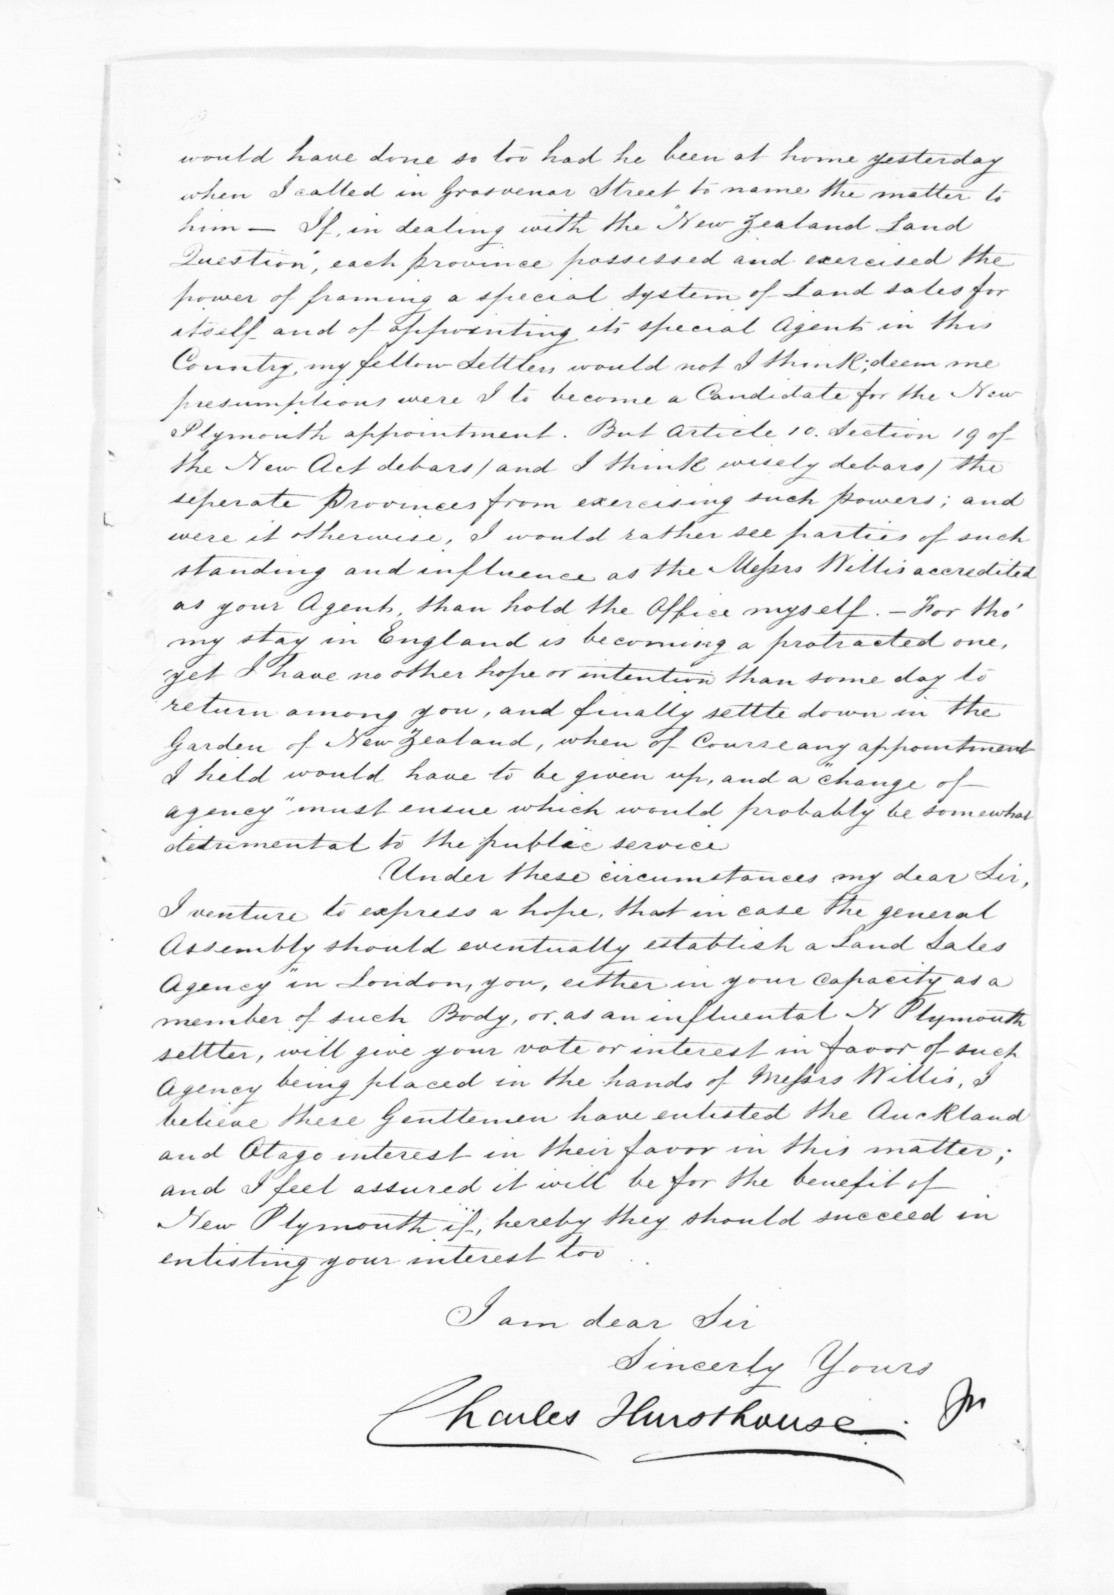 would have done so too had he been at home yesterday
when I called in Grosvenor Street to name the matter to
him — If, in dealing with the "New Zealand Land
Question", each province possessed and exercised the
power of framing a special system of Land sales for
itself and of appointing its special Agents in this
Country, my fellow Settlers would not I think, deem me
presumptious were I to become a Candidate for the New
Plymouth appointment. But Article 10. Section 19 of
the New Act debars / and I think wisely debars / the
seperate Provinces from exercising such powers; and
were it otherwise, I would rather see parties of such
standing and influence as the Messrs Willis accredited
as your Agents, than hold the Office myself. — For tho'
my stay in England is becoming a protracted one,
yet I have no other hope or intention than some day to
return among you, and finally settle down in the
Garden of New Zealand, when of Course any appointment
I held would have to be given up, and a "change of
agency" must ensue which would probably be somewhat
detrimental to the public service
Under these circumstances my dear Sir,
I venture to express a hope, that in case the general
Assembly should eventually establish a "Land Sales
Agency" in London, you, either in your Capacity as a
member of such Body, or as an influental N Plymouth
settler, will give your vote or interest in favor of such
Agency being placed in the hands of Messrs Willis, I
believe these Gentlemen have enlisted the Auckland
and Otago interest in their favor in this matter;
and I feel assured it will be for the benefit of
New Plymouth if, hereby they should succeed in
enlisting your interest too
I am dear Sir
Sincerly Yours
Charles Hursthouse. Jn